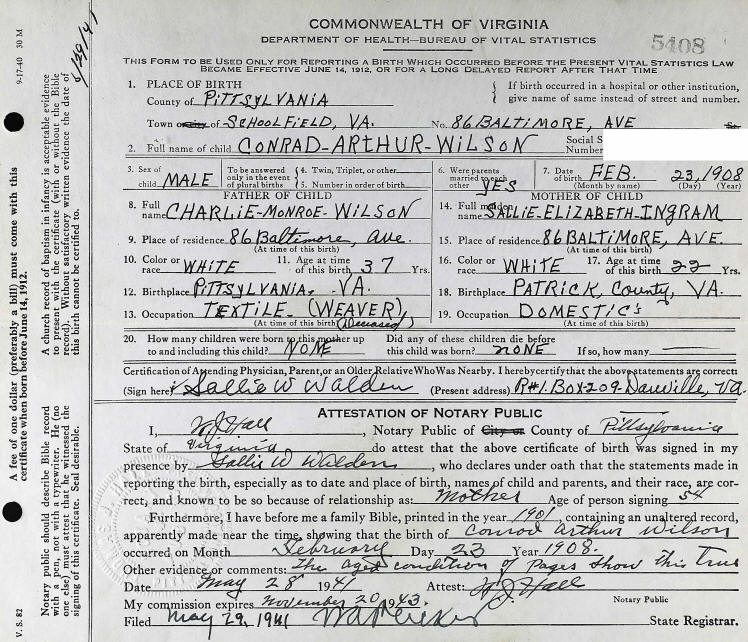 COMMONWEALTH OF VIRGINIA
DEPARTMENT OF HEALTH—BUREAU OF VITAL STATISTICS
5408
THIS FORM TO BE USED ONLY FOR REPORTING A BIRTH WHICH OCCURRED BEFORE THE PRESENT VITAL STATISTICS LAW
BECAME EFFECTIVE JUNE 14, 1912, OR FOR A LONG DELAYED REPORT AFTER THAT TIME
1. PLACE OF BIRTH
County of PITTSYLVANIA
If birth occurred in a hospital or other institution,
give name of same instead of street and number.
Town or City of SCHOOLFIELD, VA. No. 86 BALTIMORE, AVE St.
2. Full name of child CONRAD-ARTHUR-WILSON Social S
Number
3. Sex of child MALE
To be answered only in the event of plural births
4. Twin, Triplet, or other
5. Number in order of birth
6. Were parents married to each other YES
7. Date of birth FEB. 23, 1908
(Month by name) (Day) (Year)
FATHER OF CHILD
8. Full name CHARLIE-MONROE-WILSON
9. Place of residence 86 Baltimore, Ave.
(At time of this birth)
10. Color or race WHITE 11. Age at time of this birth 37 Yrs.
12. Birthplace PITTSYLVANIA, VA.
13. Occupation TEXTILE-(WEAVER)
(At time of this birth) (Deceased)
MOTHER OF CHILD
14. Full maiden name SALLIE-ELIZABETH-INGRAM
15. Place of residence 86 BALTIMORE, AVE.
(At time of this birth)
16. Color or race WHITE 17. Age at time of this birth 22 Yrs.
18. Birthplace PATRICK, County, VA.
19. Occupation DOMESTIC's
(At time of this birth)
20. How many children were born to this mother up to and including this child? NONE Did any of these children die before this child was born? NONE If so, how many
Certification of Attending Physician, Parent, or an Older Relative Who Was Nearby. I hereby certify that the above statements are correct:
(Sign here) Sallie W Walden (Present address) R#1. Box 209. Danville, Va.
ATTESTATION OF NOTARY PUBLIC
I, W J Hall, Notary Public of City or County of Pittsylvania
State of Virginia do attest that the above certificate of birth was signed in my
presence by Sallie W Walden, who declares under oath that the statements made in
reporting the birth, especially as to date and place of birth, names of child and parents, and their race, are cor-
rect, and known to be so because of relationship as: Mother Age of person signing 54
Furthermore, I have before me a family Bible, printed in the year 1901, containing an unaltered record,
apparently made near the time, showing that the birth of Conrad Arthur Wilson
occurred on Month February Day 23 Year 1908.
Other evidence or comments: The aged condition of pages show this true
Date May 28 1941 Attest: W J Hall
My commission expires November 20 1943. Notary Public
Filed May 29, 1941 State Registrar.
9-17-40 30 M
A church record of baptism in infancy is acceptable evidence
to present with the certificate (with or without the Bible
record). Without satisfactory written evidence the date of
this birth cannot be certified to.
A fee of one dollar (preferably a bill) must come with this
certificate when born before June 14, 1912.
Notary public should describe Bible record
with a pen, not with a typewriter. He (no
one else) must attest that he witnessed the
signing of this certificate. Seal desirable.
V. S. 82